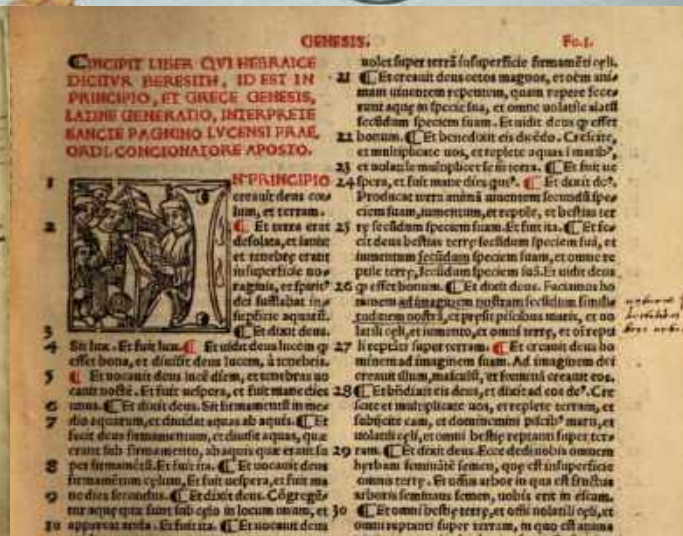 GENESIS. Fo.I.
INCIPIT LIBER QVI HEBRAICE
DICITVR BERESITH, ID EST IN
PRINCIPIO, ET GRECE GENESIS,
LATINE GENERATIO, INTERPRETE
SANCTE PAGNINO LVCENSI PRAE,
ORDI. CONCIONATORE APOSTO.
1 N PRINCIPIO
creauit deus cœ/
lum, et terram.
2 ¶ Et terra erat
desolata, et inanis
et tenebrę erant
in superficie uo/
raginis, et spirit⁹
dei sufflabat in
supficie aquarū.
3 ¶ Et dixit deus.
4 Sit lux. Et fuit lux. ¶ Et uidit deus lucem ꝙ
esset bona, et diuisit deus lucem, à tenebris.
5 ¶ Et uocauit deus lucē diem, et tenebras uo
cauit noctē. Et fuit uespera, et fuit mane dies
6 unus. ¶ Et dixit deus. Sit firmamentū in me/
7 dio aquarum, et diuidat aquas ab aquis. ¶ Et
fecit deus firmamentum, et diuisit aquas, quæ
erant sub firmamento, ab aquis quæ erant su
8 per firmamētū. Et fuit ita. ¶ Et uocauit deus
firmamētum cęlum, Et fuit uespera, et fuit ma
9 ne dies secundus. ¶ Et dixit deus. Cōgregē/
tur aquę quæ sunt sub cęlo in locum unum, et
10 appareat arida. Et fuit ita. ¶ Et uocauit deus
uolet super terrā in superficie firmamēti cęli.
21 ¶ Et creauit deus cetos magnos, et oēm ani/
mam uiuentem repentem, quam repere fece/
runt aquę in specie sua, et omne uolatile alatū
secūdum speciem suam. Et uidit deus ꝙ esset
22 bonum. ¶ Et benedixit eis dicēdo. Crescite,
et multiplicate uos, et replete aquas ī marib⁹,
23 et uolatile multiplicet se in terra. ¶ Et fuit ue
24 spera, et fuit mane dies qui⁹. ¶ Et dixit de⁹.
Producat terra animā uiuentem secundū spe/
ciem suam, iumentum, et reptile, et bestias ter
25 rę secūdum speciem suam. Et fuit ita. ¶ Et fe/
cit deus bestias terrę secūdum speciem suā, et
iumentum secūdum speciem suam, et omne re
ptile terrę, secūdum speciem suā. Et uidit deus
26 ꝙ esset bonum. ¶ Et dixit deus. Faciamus ho
minem ad imaginem nostram secūdum simili/
tudinem nostrā, et presit piscibus maris, et uo
latili cęli, et iumento, et omni terrę, et oī repti
27 li reptāti super terram. ¶ Et creauit deus ho
minem ad imaginem suam. Ad imaginem dei
creauit illum, masculū, et foeminā creauit eos.
28 ¶ Et bñdixit eis deus, et dixit ad eos de⁹. Cre
scite et multiplicate uos, et replete terram, et
subijcite eam, et dominemini piscib⁹ maris, et
uolatili cęli, et omni bestię reptanti super ter/
29 ram. ¶ Et dixit deus. Ecce dedi uobis omnem
herbam seminātē semen, quę est in superficie
omnis terrę. Et omnis arbor in qua est fructus
arboris seminans semen, uobis erit in escam.
30 ¶ Et omni bestię terrę, et omī uolatili cęli, et
omni reptanti super terram, in quo est anima